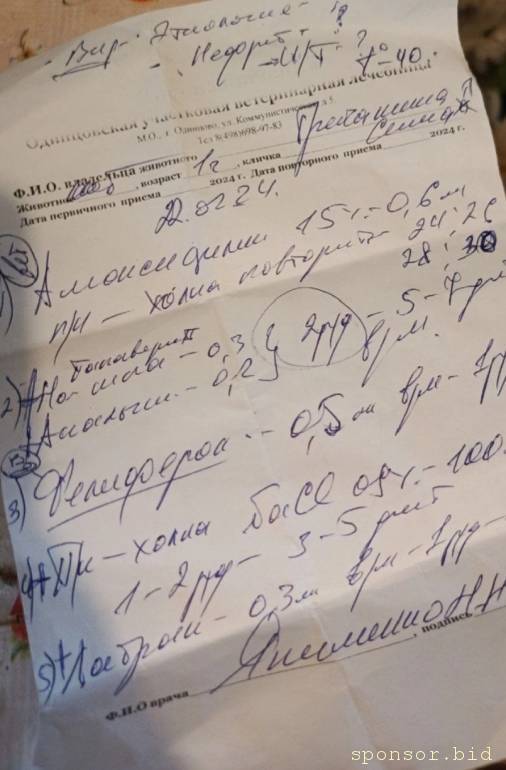 Вир. Этиология - ?
- Нефрит ?
- И/Т. ? t°-40.
Одинцовская участковая ветеринарная лечебница
М.О., г. Одинцово, ул. Коммунистическая д 5
Тел 8(498)698-97-83
Ф.И.О. владельца животного
Животное , возраст 1г , кличка Сёма
Дата первичного приема 2024 г. Дата повторного приема 2024 г.
22.0224.
1) Амоксициллин 15%-0,6 мл
п/к - холка повторить 24; 26
28; 30
папаверин
2) + Но-шпа - 0,3 } 2р/д - 5-7 дн
Анальгин - 0,2 в/м.
3) Фелиферон - 0,5 мл в/м - 1р/д
4) + П/к - холка NaCl 0,9%-100.
1-2р/д - 3-5 дней
5) + - 0,3 мл в/м - 1р/д -
Ф.И.О врача , подпись
sponsor.bid